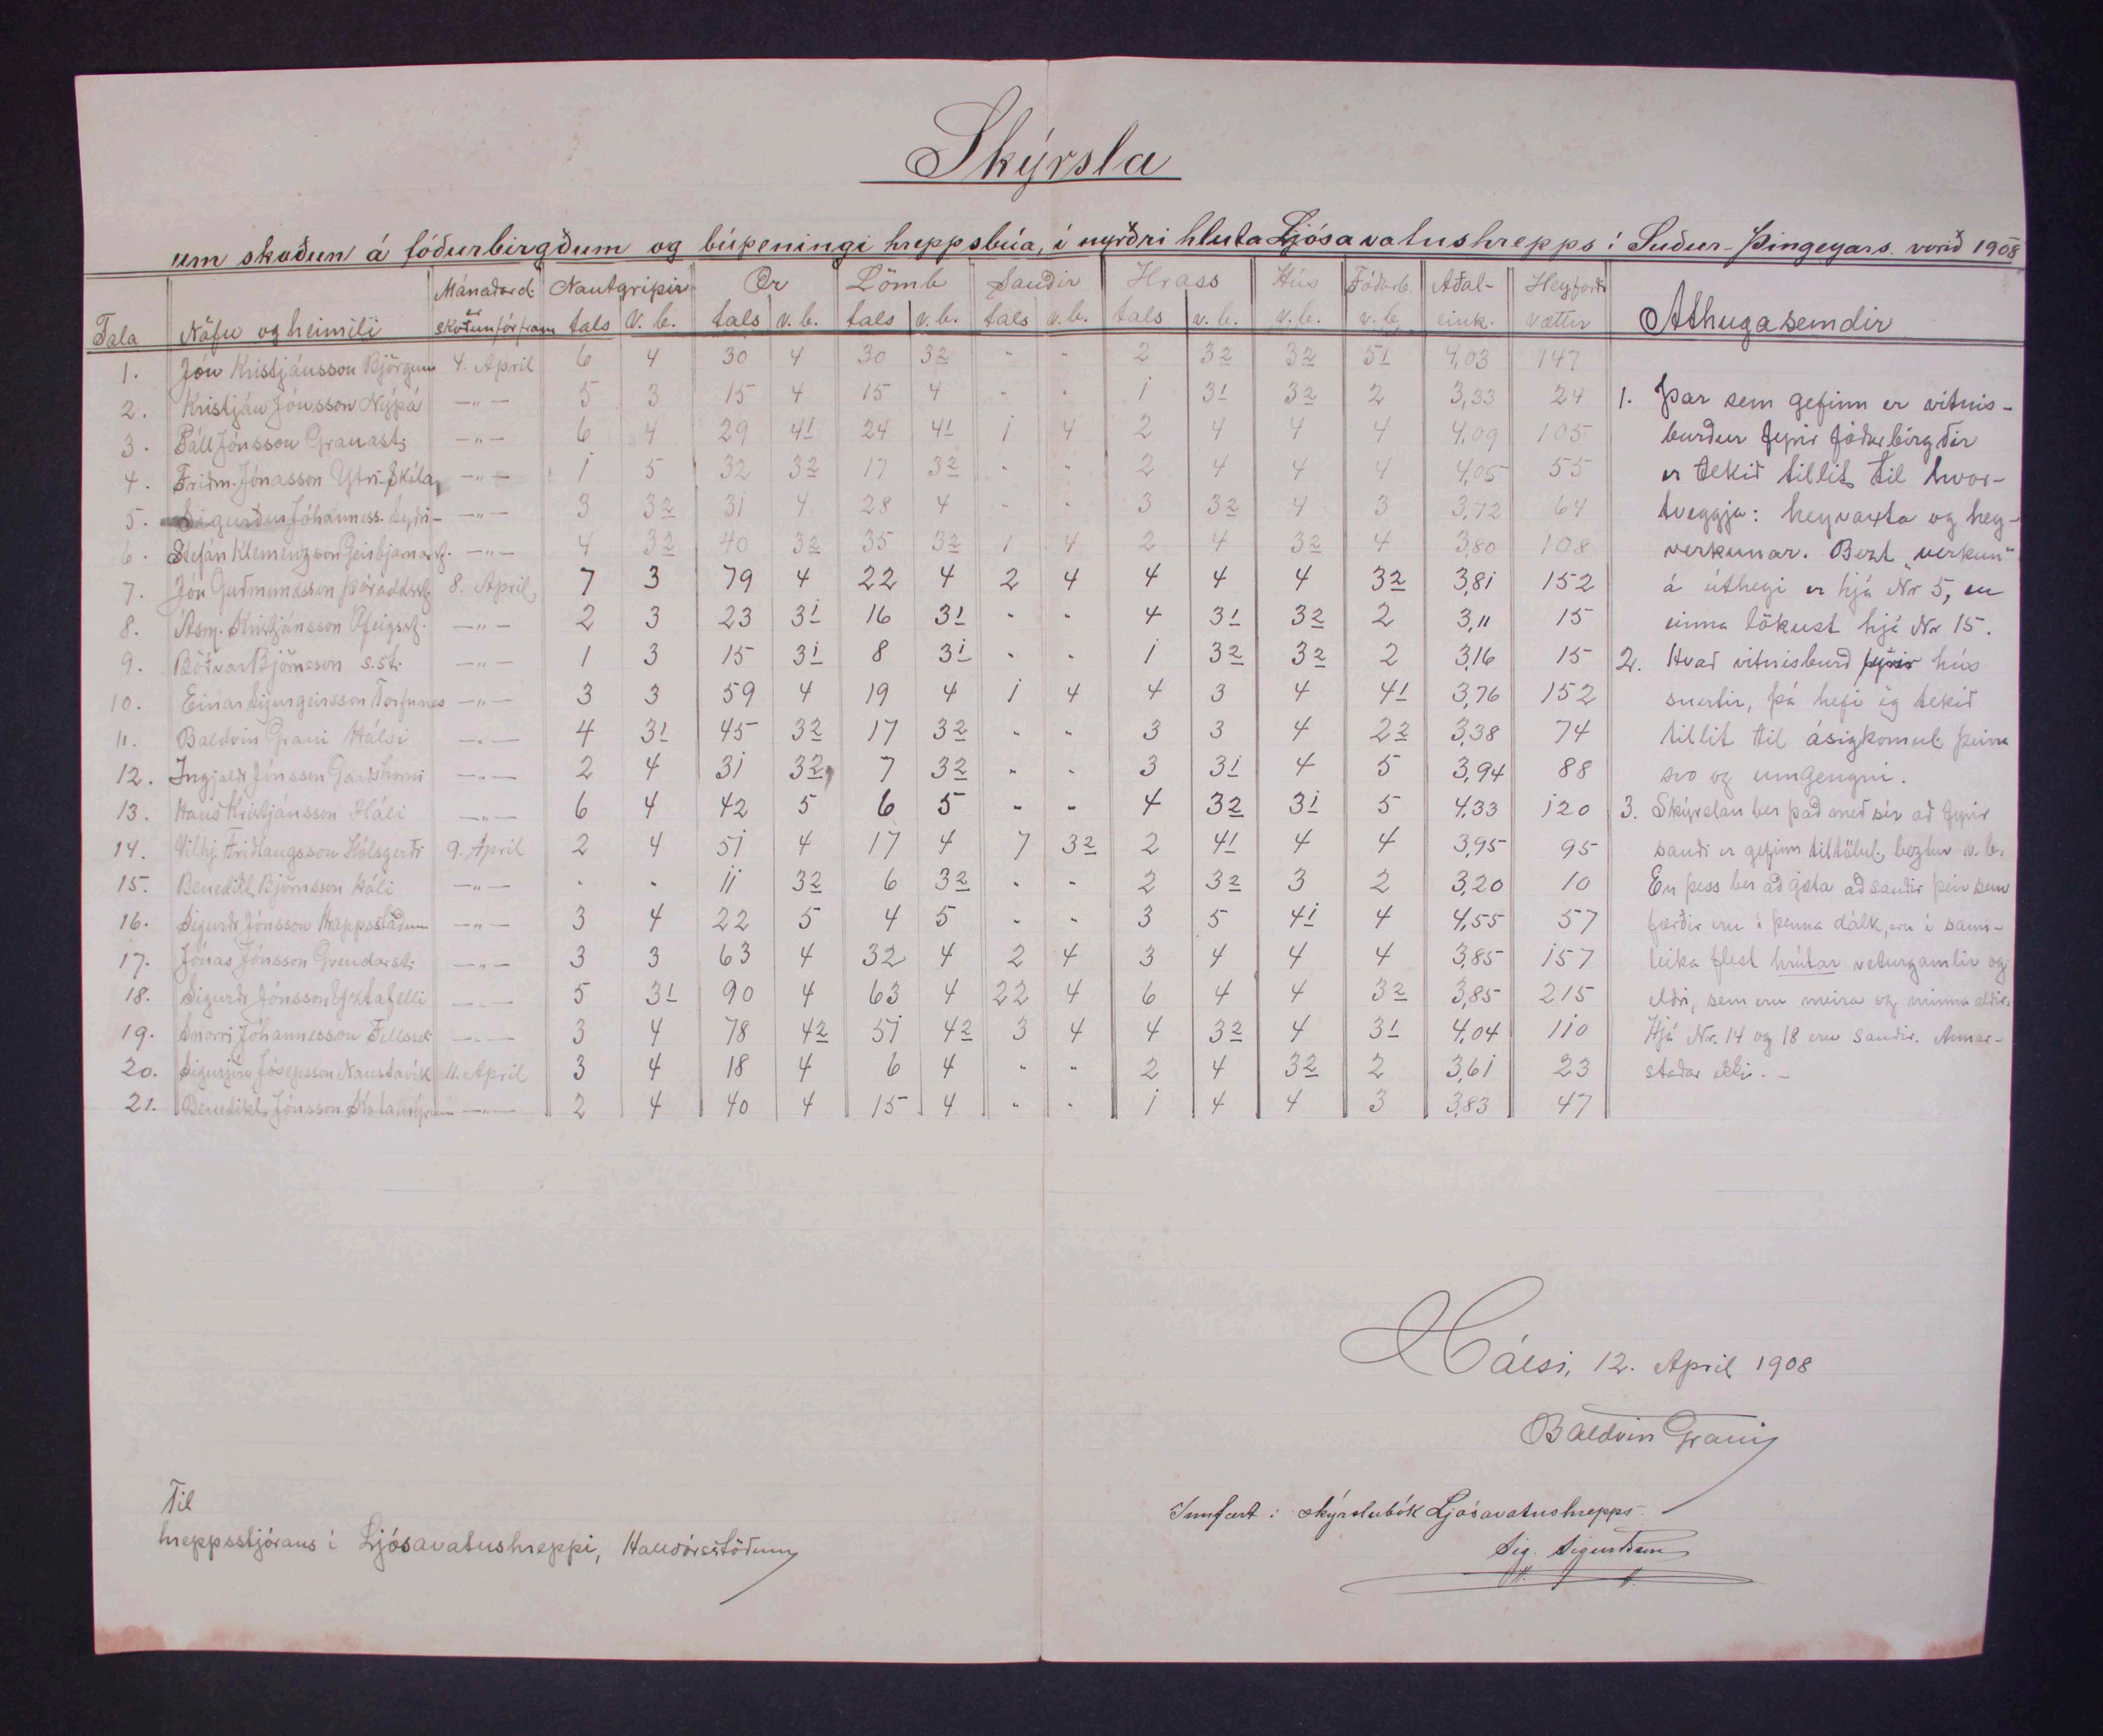 Skýrsla
um skoðun á fóðurbirgðum og búpeningi hreppsbúa, í nyrðri hluta Ljósavatnshrepps í Suður-Þingeyjars. vorið 1908
Tala Nöfn og heimili Mánaðard. er skoðun fór fram Nautgripir tals v.b. Ær tals v.b. Lömb tals v.b. Sauðir tals v.b. Hross tals v.b. Hús v.b. Fóðurb. v.b. Aðal-eink. Heyforði vættir Athugasemdir
1. Jón Kristjánsson Björgum 4. April 6 4 30 4 30 32 - - 2 32 32 51 4,03 147
2. Kristján Jónsson Nýpá —"— 5 3 15 4 15 4 - - 1 31 32 2 3,33 24
3. Páll Jónsson Granast. —"— 6 4 29 41 24 41 1 4 2 4 4 4 4,09 105
4. Friðm. Jónasson Ytri-Skál —"— 1 5 32 32 17 32 - - 2 4 4 4 4,05 55
5. Sigurður Jóhanness. Syðri- —"— 3 32 31 4 28 4 - - 3 32 4 3 3,72 64
6. Stefán Klemenzson Geirbjarnarst. —"— 4 32 40 32 35 32 1 4 2 4 32 4 3,80 108
7. Jón Guðmundsson Þóroddsst. 8. April 7 3 79 4 22 4 2 4 4 4 4 32 3,81 152
8. Ásm. Kristjánsson Ófeigsst. —"— 2 3 23 31 16 31 - - 4 31 32 2 3,11 15
9. Böðvar Björnsson s.st. —"— 1 3 15 31 8 31 - - 1 32 32 2 3,16 15
10. Einar Sigurgeirsson Torfunes —"— 3 3 59 4 19 4 1 4 4 3 4 41 3,76 152
11. Baldvin Grani Hálsi —"— 4 31 45 32 17 32 - - 3 3 4 22 3,38 74
12. Ingjaldr Jónsson Garðshorni —"— 2 4 31 32 7 32 - - 3 31 4 5 3,94 88
13. Hans Kristjánsson Hóli —"— 6 4 42 5 6 5 - - 4 32 31 5 4,33 120
14. Vilhj. Friðlaugsson Hólsgerði 9. April 2 4 51 4 17 4 7 32 2 41 4 4 3,95 95
15. Benedikt Björnsson Hóli —"— - - 11 32 6 32 - - 2 32 3 2 3,20 10
16. Sigurðr Jónsson Krappsstöðum —"— 3 4 22 5 4 5 - - 3 5 41 4 4,55 57
17. Jónas Jónsson Gvendarst. —"— 3 3 63 4 32 4 2 4 3 4 4 4 3,85 157
18. Sigurðr Jónsson Yztafelli —"— 5 31 90 4 63 4 22 4 6 4 4 32 3,85 215
19. Snorri Jóhannesson Fellssel —"— 3 4 78 42 51 42 3 4 4 32 4 31 4,04 110
20. Sigurjón Jósepsson Naustavík 11. April 3 4 18 4 6 4 - - 2 4 32 2 3,61 23
21. Benedikt Jónsson —"— 2 4 40 4 15 4 - - 1 4 4 3 3,83 47
1. Þar sem gefinn er vitnis-
burður fyrir fóðurbirgðir
er tekið tillit til hvor-
tveggja: heyvaxta og hey-
verkunar. Bezt "verkun"
á útheyi er hjá Nr 5, en
einna lökust hjá Nr 15.
2. Hvað vitnisburð fyrir hús
snertir, þá hefi ég tekið
tillit til ásigkomul. þeirra
svo og umgengni.
3. Skýrslan ber það með sér að fyrir
sauði er gefinn tiltölul. beztur v.b.
En þess ber að gæta að sauðir þeir sem
færðir eru í þenna dálk, eru í raun-
leika flest hrútar veturgamlir og
eldri, sem eru meira og minna aldir.
Hjá Nr. 14 og 18 eru sauðir. Annar-
staðar ekki. -
Hálsi, 12. April 1908
Baldvin Grani
Til
hreppsstjórans í Ljósavatnshreppi, Halldórsstöðum
Innfært í skýrslubók Ljósavatnshrepps.
Sig. Sigurðsson